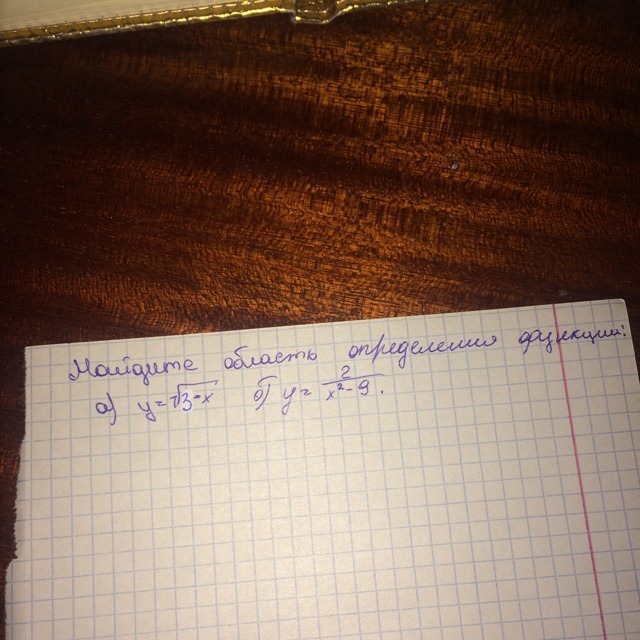 Найдите область определения функции:
а) y=√3-x б) y= 2/x²-9.